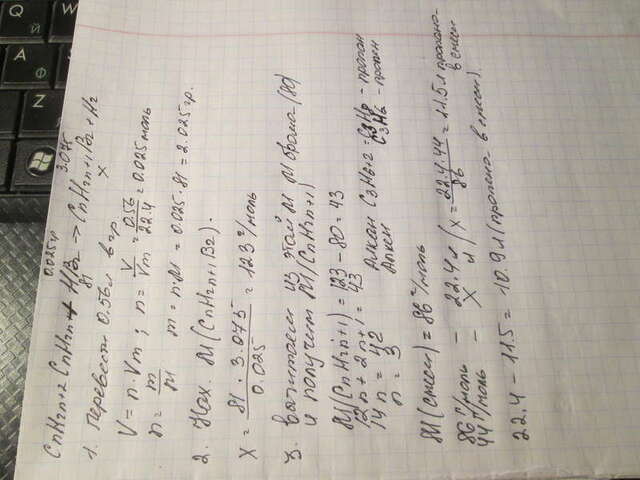 0.025гр 3.075
CnH2n+2 CnH2n + HBr → CnH2n+1Br + H2
81 x
1. перевести 0.56л в гр.
V = n · Vm ; n = V/Vm = 0.56/22.4 = 0.025 моль
n = m/M m = n·M = 0.025·81 = 2.025 гр.
2. Нах. M(CnH2n+1Br).
X = 81 · 3.075 / 0.025 = 123 г/моль
3. вычитаем из этой M M брома (80)
и получим M(CnH2n+1)
M(CnH2n+1) = 123 - 80 = 43
12n + 2n + 1 = 43
14n = 42 Алкан C3H6+2 = C3H8 - пропан
n = 3 Алкен C3H6 - пропен
M(смеси) = 86 г/моль
86 г/моль - 22.4 л
44 г/моль - X л / X = 22.4·44 / 86 = 11.5 л пропана
в смеси
22.4 - 11.5 = 10.9 л (пропена в смеси).
Q
Й
A
Z